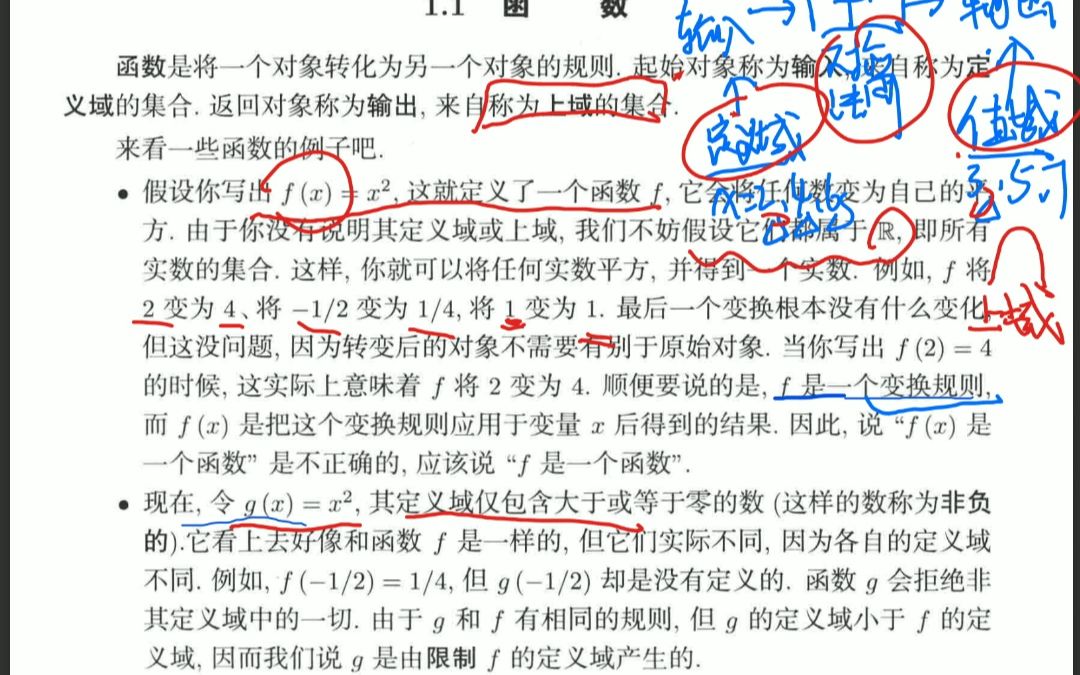 1.1 函 数
输入 → → 输出
函数是将一个对象转化为另一个对象的规则. 起始对象称为输入, 来自称为定
义域的集合. 返回对象称为输出, 来自称为上域的集合.
对应
法则
定义域
值域
来看一些函数的例子吧.
• 假设你写出 f (x) = x², 这就定义了一个函数 f, 它会将任何数变为自己的平
方. 由于你没有说明其定义域或上域, 我们不妨假设它们都属于 ℝ, 即所有
实数的集合. 这样, 你就可以将任何实数平方, 并得到一个实数. 例如, f 将
2 变为 4、将 −1/2 变为 1/4, 将 1 变为 1. 最后一个变换根本没有什么变化,
上域
但这没问题, 因为转变后的对象不需要有别于原始对象. 当你写出 f (2) = 4
的时候, 这实际上意味着 f 将 2 变为 4. 顺便要说的是, f 是一个变换规则,
而 f (x) 是把这个变换规则应用于变量 x 后得到的结果. 因此, 说 “f (x) 是
一个函数” 是不正确的, 应该说 “f 是一个函数”.
• 现在, 令 g (x) = x², 其定义域仅包含大于或等于零的数 (这样的数称为非负
的).它看上去好像和函数 f 是一样的, 但它们实际不同, 因为各自的定义域
不同. 例如, f (−1/2) = 1/4, 但 g (−1/2) 却是没有定义的. 函数 g 会拒绝非
其定义域中的一切. 由于 g 和 f 有相同的规则, 但 g 的定义域小于 f 的定
义域, 因而我们说 g 是由限制 f 的定义域产生的.